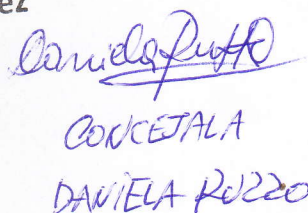 ez
Daniela Ruzzo
CONCEJALA
DANIELA RUZZO